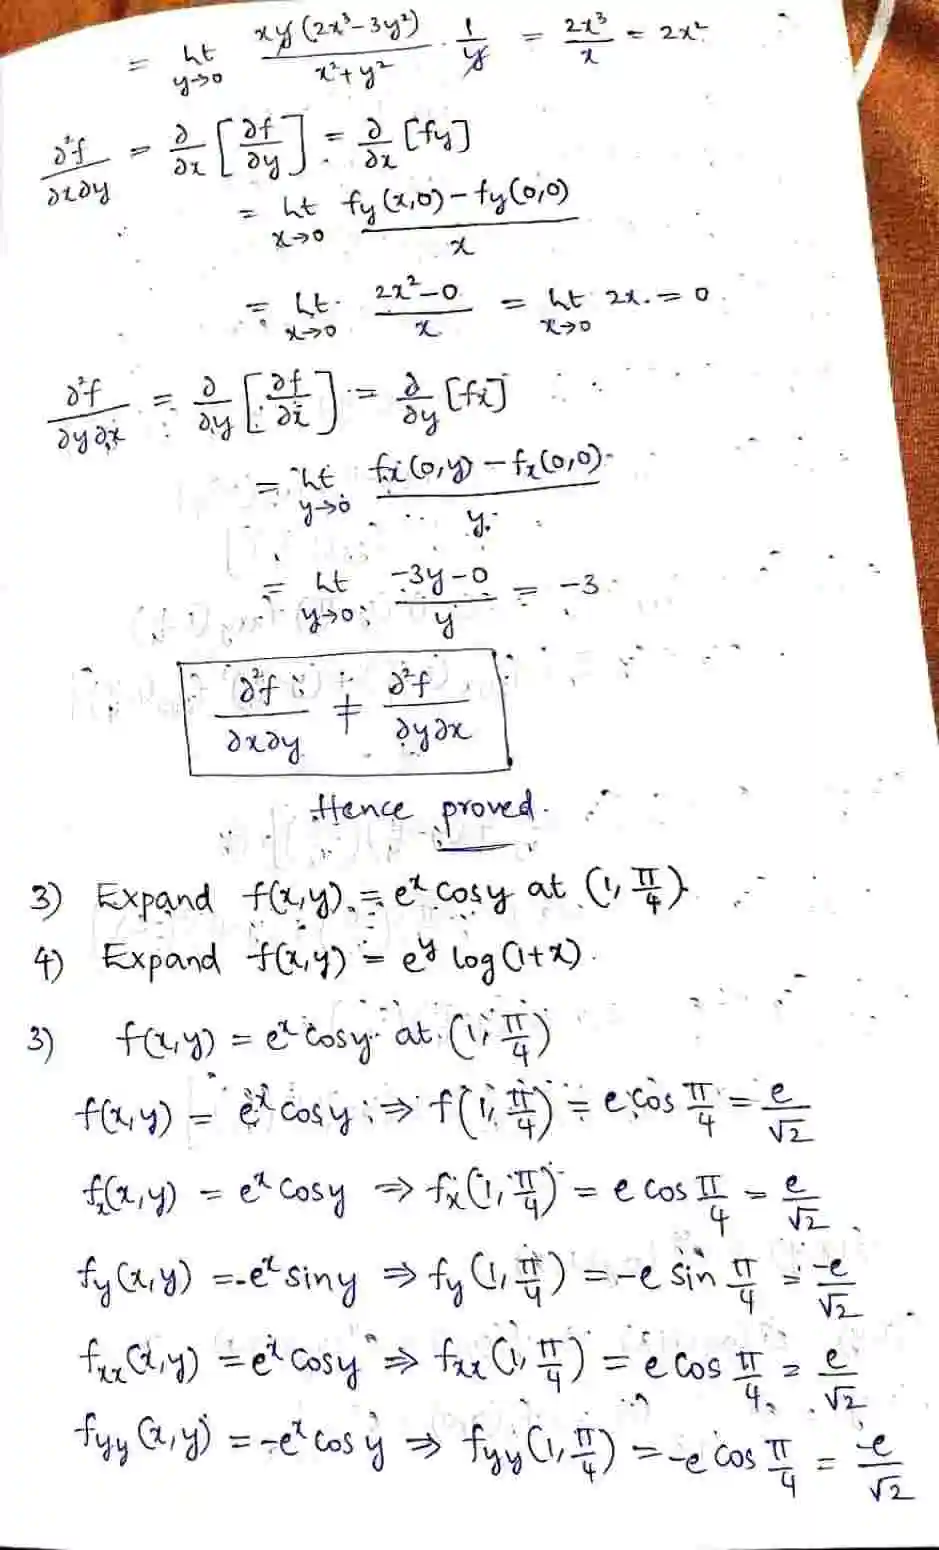 = lt y→0 xy(2x³-3y²)/x²+y² · 1/y = 2x³/x = 2x²
∂²f/∂x∂y = ∂/∂x [∂f/∂y] = ∂/∂x [fy]
= lt x→0 fy(x,0) - fy(0,0)/x
= lt x→0 2x²-0/x = lt x→0 2x. = 0
∂²f/∂y∂x = ∂/∂y [∂f/∂x] = ∂/∂y [fx]
= lt y→0 fx(0,y) - fx(0,0)/y
= lt y→0 -3y-0/y = -3
∂²f/∂x∂y ≠ ∂²f/∂y∂x
Hence proved.
3) Expand f(x,y) = eˣ cosy at (1, π/4)
4) Expand f(x,y) = eʸ log(1+x).
3) f(x,y) = eˣ cosy at (1, π/4)
f(x,y) = eˣ cosy ⇒ f(1, π/4) = e cos π/4 = e/√2
fx(x,y) = eˣ cosy ⇒ fx(1, π/4) = e cos π/4 = e/√2
fy(x,y) = -eˣ siny ⇒ fy(1, π/4) = -e sin π/4 = -e/√2
fxx(x,y) = eˣ cosy ⇒ fxx(1, π/4) = e cos π/4 = e/√2
fyy(x,y) = -eˣ cosy ⇒ fyy(1, π/4) = -e cos π/4 = -e/√2